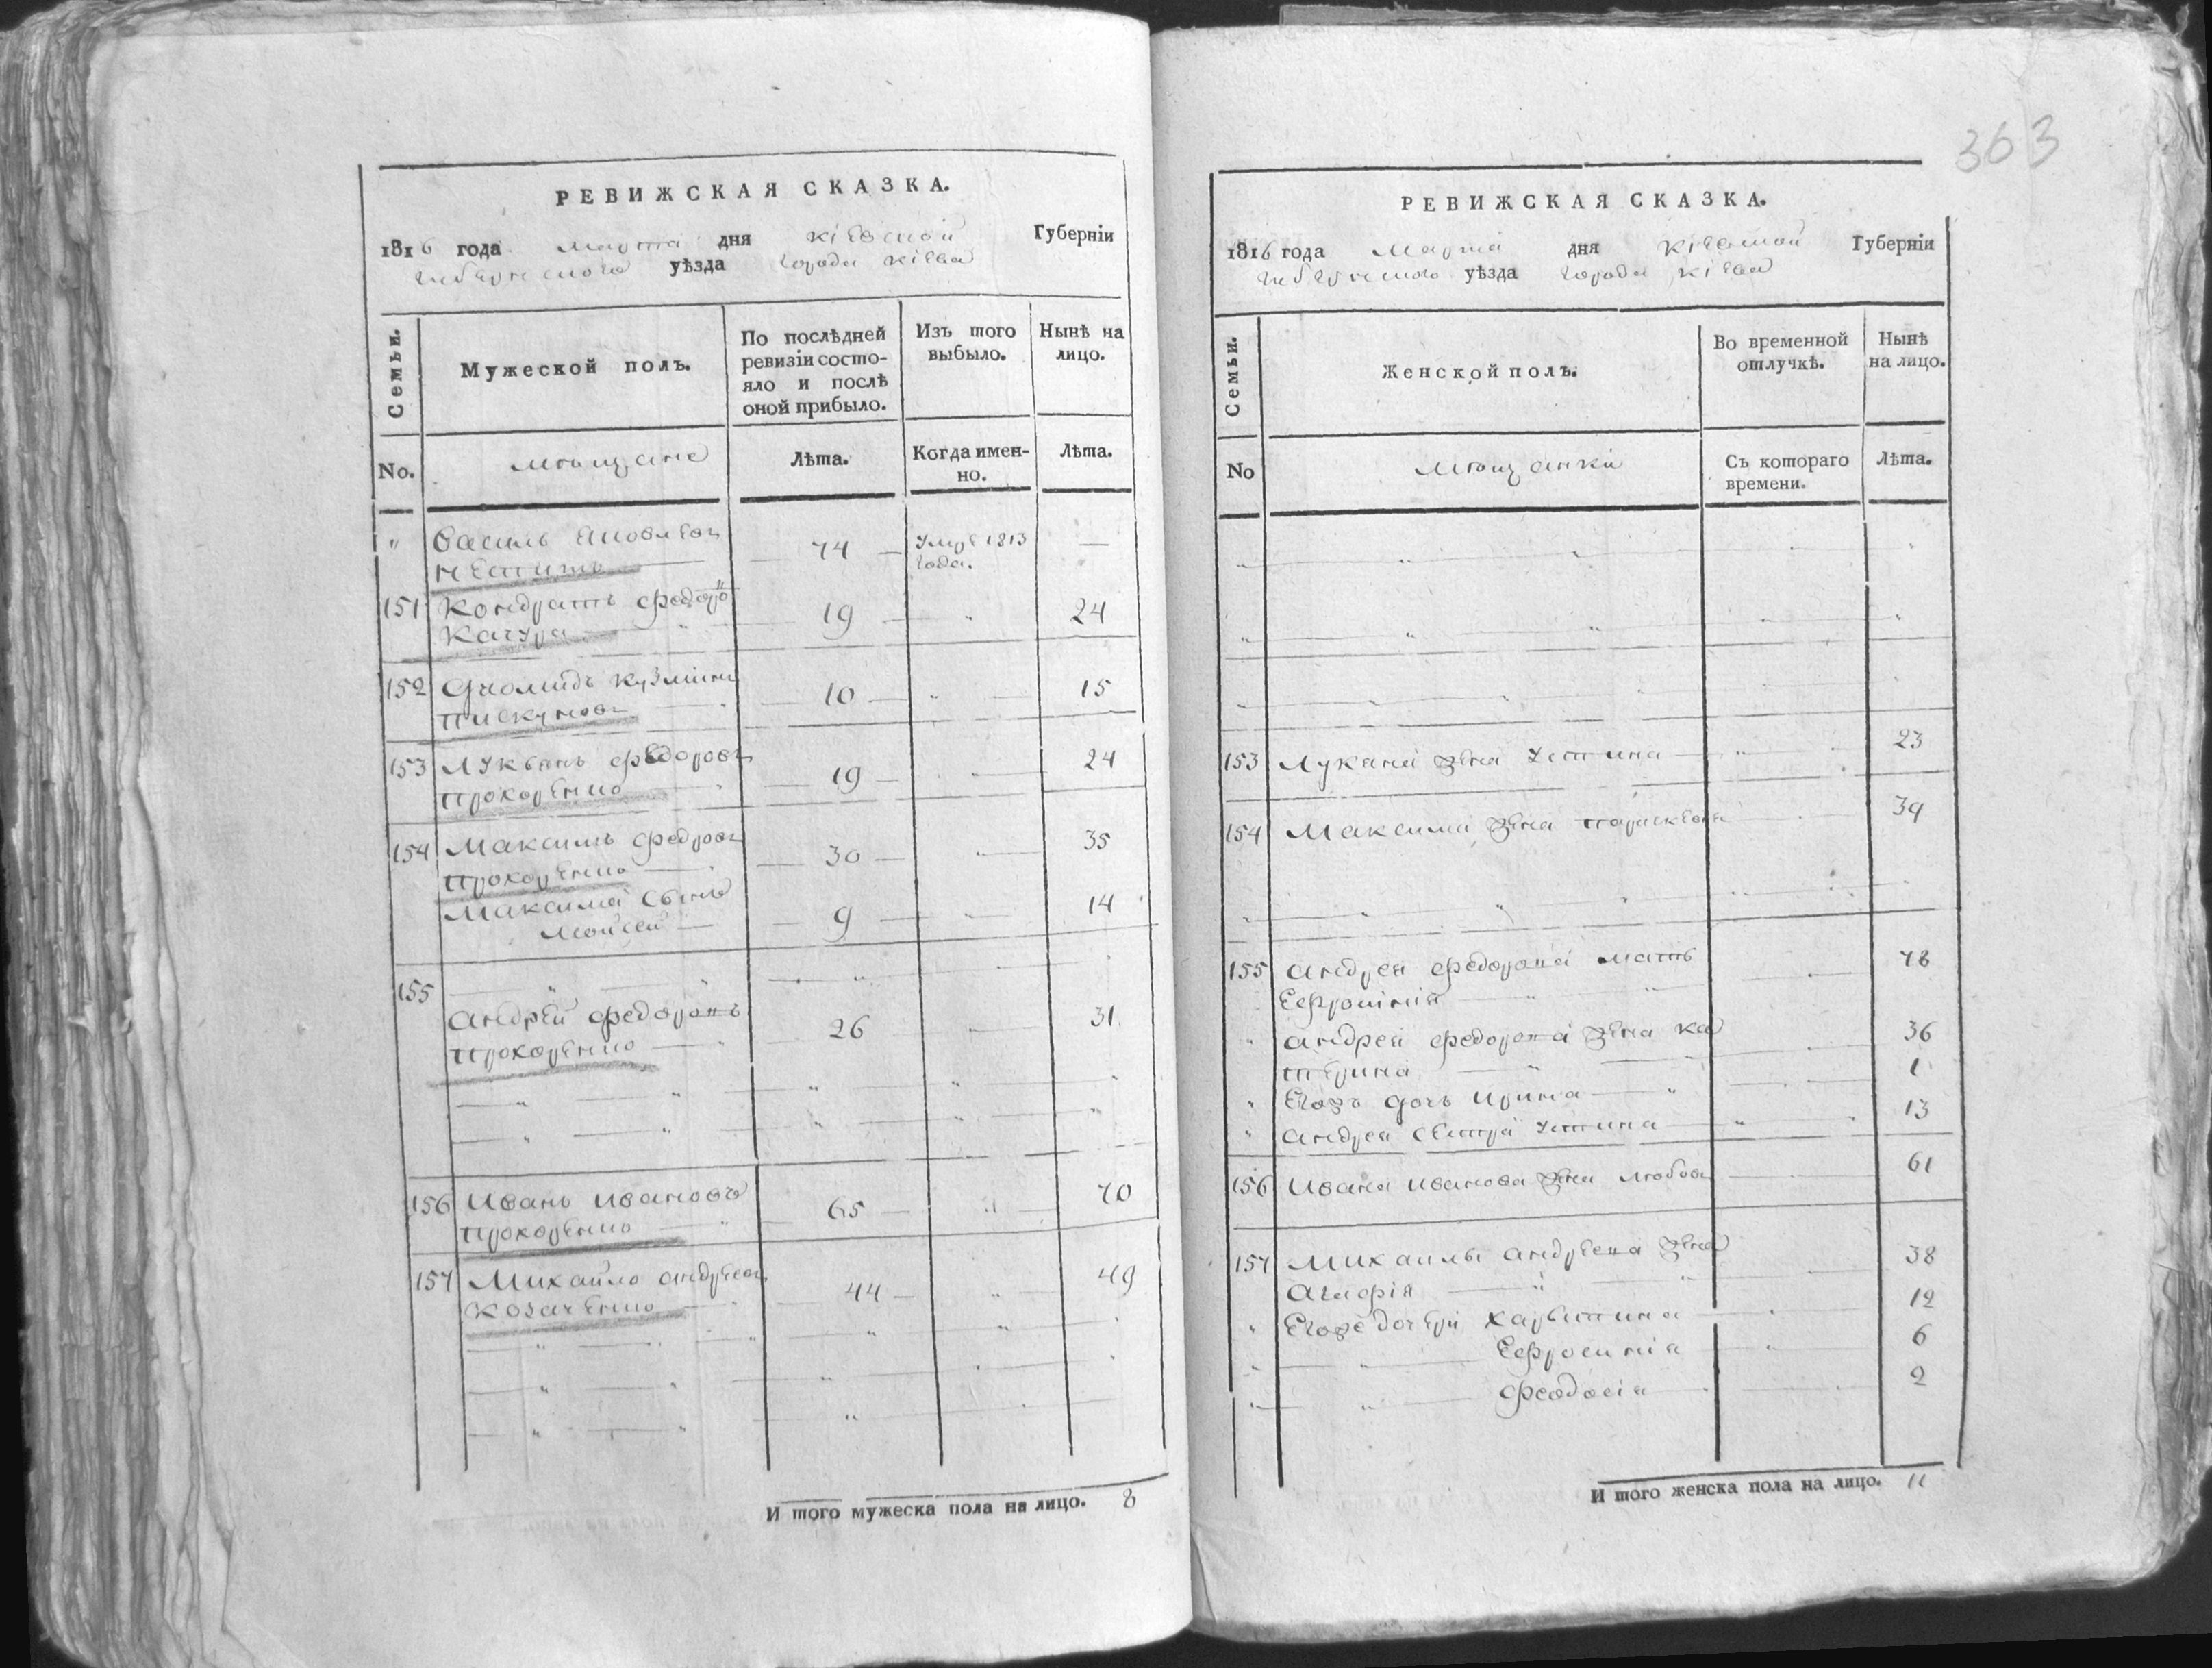 РЕВИЖСКАЯ СКАЗКА.
1816 года марта дня Кіевской Губерніи
уѣзда города Кіева
Семьи. Мужеской полъ. По послѣдней ревизіи состояло и послѣ оной прибыло. Изъ того выбыло. Нынѣ на лицо.
No. мещане Лѣта. Когда именно. Лѣта.
Василь Яковлевъ 74 Умре 1813 —
года.
151 Кондратъ Федоров 19 24
Качура
152 Кузминъ 10 15
Пискуновъ
153 Лукьянъ Федоровъ 19 24
Прохоренко
154 Максимъ Федоровъ 30 35
Прохоренко
Максима сынъ 9 14
Мойсей
155
Андрей Федоровъ 26 31
Прохоренко
156 Иванъ Ивановъ 65 70
Прохоренко
157 Михайло Андреевъ 44 49
Козаченко
И того мужеска пола на лицо. 8
363
РЕВИЖСКАЯ СКАЗКА.
1816 года Марта дня Кіевской Губерніи
уѣзда города Кіева
Семьи. Женской полъ. Во временной отлучкѣ. Нынѣ на лицо.
No мещанки Съ котораго времени. Лѣта.
153 Лукяна жена Устина 23
154 Максима жена Параскевия 39
155 Андрея Федорова мать 78
Ефросинія
Андрея Федорова жена Ка 36
терина
Егожъ дочь Ирина 1
Андрея сестра Устина 13
156 Ивана Иванова жена Любовъ 61
157 Михаилы Андреева жена 38
Агафія
Егоже дочери Харитина 12
Ефросинія 6
Феодосія 2
И того женска пола на лицо. 11